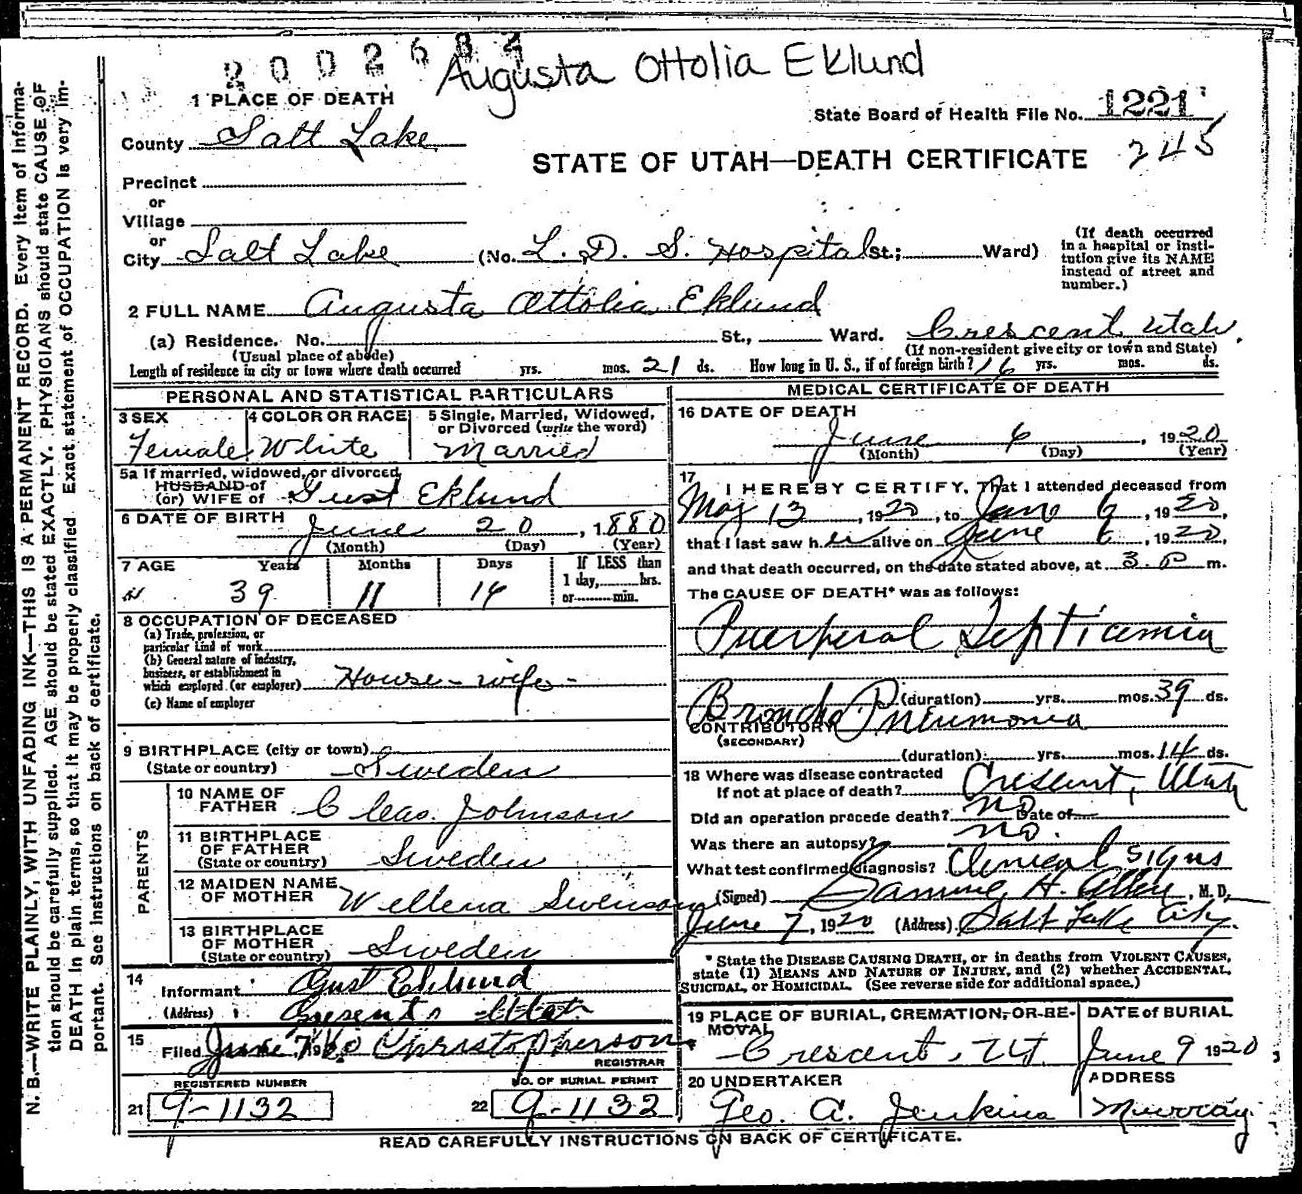 2002684
Augusta Ottolia Eklund
1 PLACE OF DEATH
State Board of Health File No. 1221
245
County Salt Lake
STATE OF UTAH—DEATH CERTIFICATE
Precinct
or
Village
or
City Salt Lake (No. L. D. S. Hospital St.; Ward)
(If death occurred in a hospital or institution give its NAME instead of street and number.)
2 FULL NAME Augusta Ottolia Eklund
(a) Residence. No. St., Ward. Crescent Utah.
(Usual place of abode) (If non-resident give city or town and State)
Length of residence in city or town where death occurred yrs. mos. 21 ds. How long in U. S., if of foreign birth? 16 yrs. mos. ds.
PERSONAL AND STATISTICAL PARTICULARS
3 SEX Female
4 COLOR OR RACE White
5 Single, Married, Widowed, or Divorced (write the word) Married
5a If married, widowed, or divorced
HUSBAND of
(or) WIFE of Gust Eklund
6 DATE OF BIRTH June 20, 1880
(Month) (Day) (Year)
7 AGE Years Months Days If LESS than
39 11 14 1 day, hrs.
or min.
8 OCCUPATION OF DECEASED
(a) Trade, profession, or
particular kind of work
(b) General nature of industry,
business, or establishment in
which employed (or employer) House-wife-
(c) Name of employer
9 BIRTHPLACE (city or town)
(State or country) Sweden
PARENTS
10 NAME OF FATHER Cleas. Johnson
11 BIRTHPLACE OF FATHER
(State or country) Sweden
12 MAIDEN NAME OF MOTHER Wellena Swenson
13 BIRTHPLACE OF MOTHER
(State or country) Sweden
14 Informant Gust Eklund
(Address) Utah
15 Filed June 7, 1920 Christopherson
REGISTRAR
REGISTERED NUMBER
21 9-1132
NO. OF BURIAL PERMIT
22 9-1132
MEDICAL CERTIFICATE OF DEATH
16 DATE OF DEATH
June 6, 1920
(Month) (Day) (Year)
17
I HEREBY CERTIFY, That I attended deceased from
May 13, 1920, to June 6, 1920,
that I last saw her alive on June 6, 1920,
and that death occurred, on the date stated above, at 3 P m.
The CAUSE OF DEATH* was as follows:
Puerperal Septicemia
(duration) yrs. mos. 39 ds.
CONTRIBUTORY Broncho Pneumonia
(SECONDARY)
(duration) yrs. mos. 14 ds.
18 Where was disease contracted
If not at place of death? Crescent, Utah
Did an operation precede death? no Date of
Was there an autopsy? no.
What test confirmed diagnosis? Clinical Signs
(Signed) H. Allen, M. D.
June 7, 1920 (Address) Salt Lake City.
* State the DISEASE CAUSING DEATH, or in deaths from VIOLENT CAUSES,
state (1) MEANS AND NATURE OF INJURY, and (2) whether ACCIDENTAL,
SUICIDAL, or HOMICIDAL. (See reverse side for additional space.)
19 PLACE OF BURIAL, CREMATION, OR REMOVAL
Crescent, Ut
DATE of BURIAL
June 9 1920
20 UNDERTAKER
Geo. A. Jenkins
ADDRESS
Murray
READ CAREFULLY INSTRUCTIONS ON BACK OF CERTIFICATE.
N. B.—WRITE PLAINLY, WITH UNFADING INK—THIS IS A PERMANENT RECORD. Every item of information should be carefully supplied. AGE should be stated EXACTLY. PHYSICIANS should state CAUSE OF DEATH in plain terms, so that it may be properly classified. Exact statement of OCCUPATION is very important. See instructions on back of certificate.